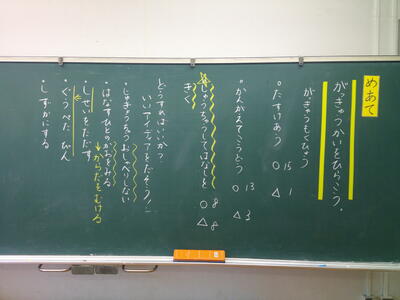 めあて
がっきゅうかいをひらこう。
がっきゅうもくひょう
たすけあう ○15 △1
かんがえてこうどう ○13 △3
しゅうちゅうしてはなしをきく ○8 △8
どうすればいいか?
いいアイディアをだそう!
・じゅぎょうちゅうおしゃべりしない
・はなすひとのかおをみる
しせいをただす
→からだもむける
・ぐうぺたぴん
・しずかにする